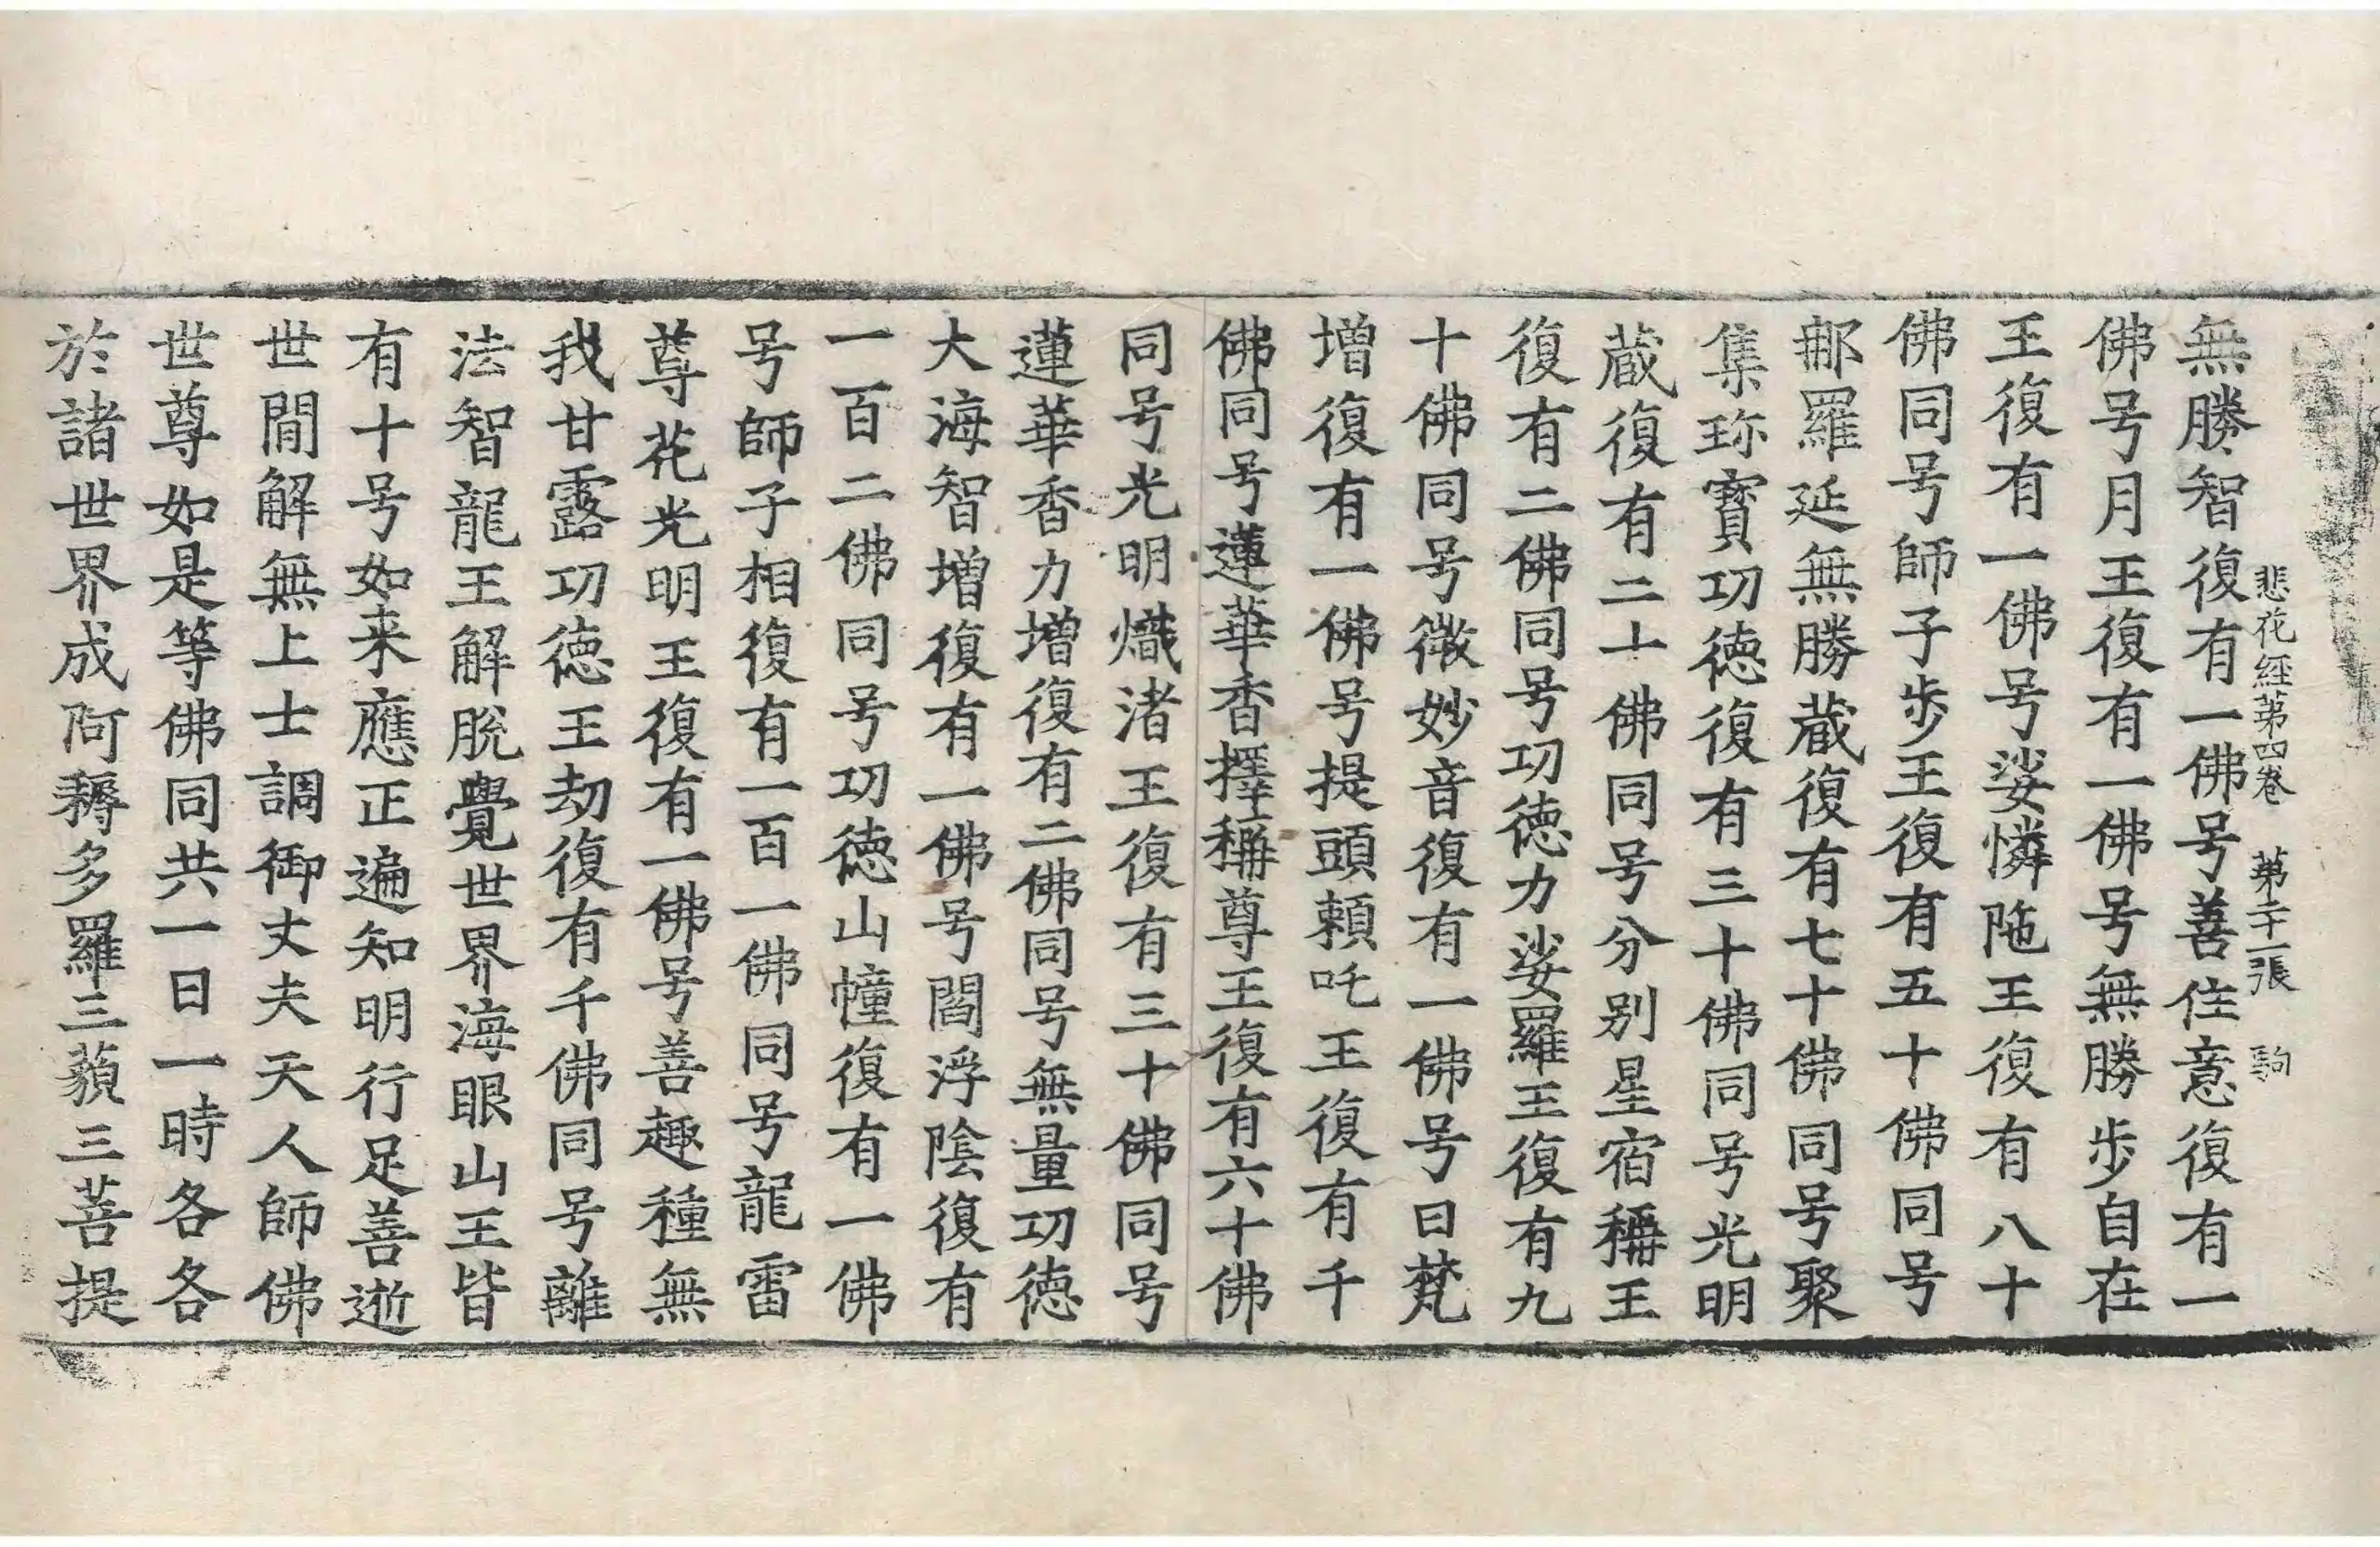 悲花經第四卷 第二十一張 駒
無勝智復有一佛号善住意復有一
佛号月王復有一佛号無勝步自在
王復有一佛号娑憐陁王復有八十
佛同号師子步王復有五十佛同号
郍羅延無勝藏復有七十佛同号聚
集珎寶功德復有三十佛同号光明
藏復有二十佛同号分别星宿稱王
復有二佛同号功德力娑羅王復有九
十佛同号微妙音復有一佛号曰梵
增復有一佛号提頭賴吒王復有千
佛同号蓮華香擇稱尊王復有六十佛
同号光明熾渚王復有三十佛同号
蓮華香力增復有二佛同号無量功德
大海智增復有一佛号閻浮陰復有
一百二佛同号功德山幢復有一佛
号師子相復有一百一佛同号龍雷
尊花光明王復有一佛号善趣種無
我甘露功德王劫復有千佛同号離
法智龍王解脫覺世界海眼山王皆
有十号如来應正遍知明行足善逝
世閒解無上士調御丈夫天人師佛
世尊如是等佛同共一日一時各各
於諸世界成阿耨多羅三藐三菩提